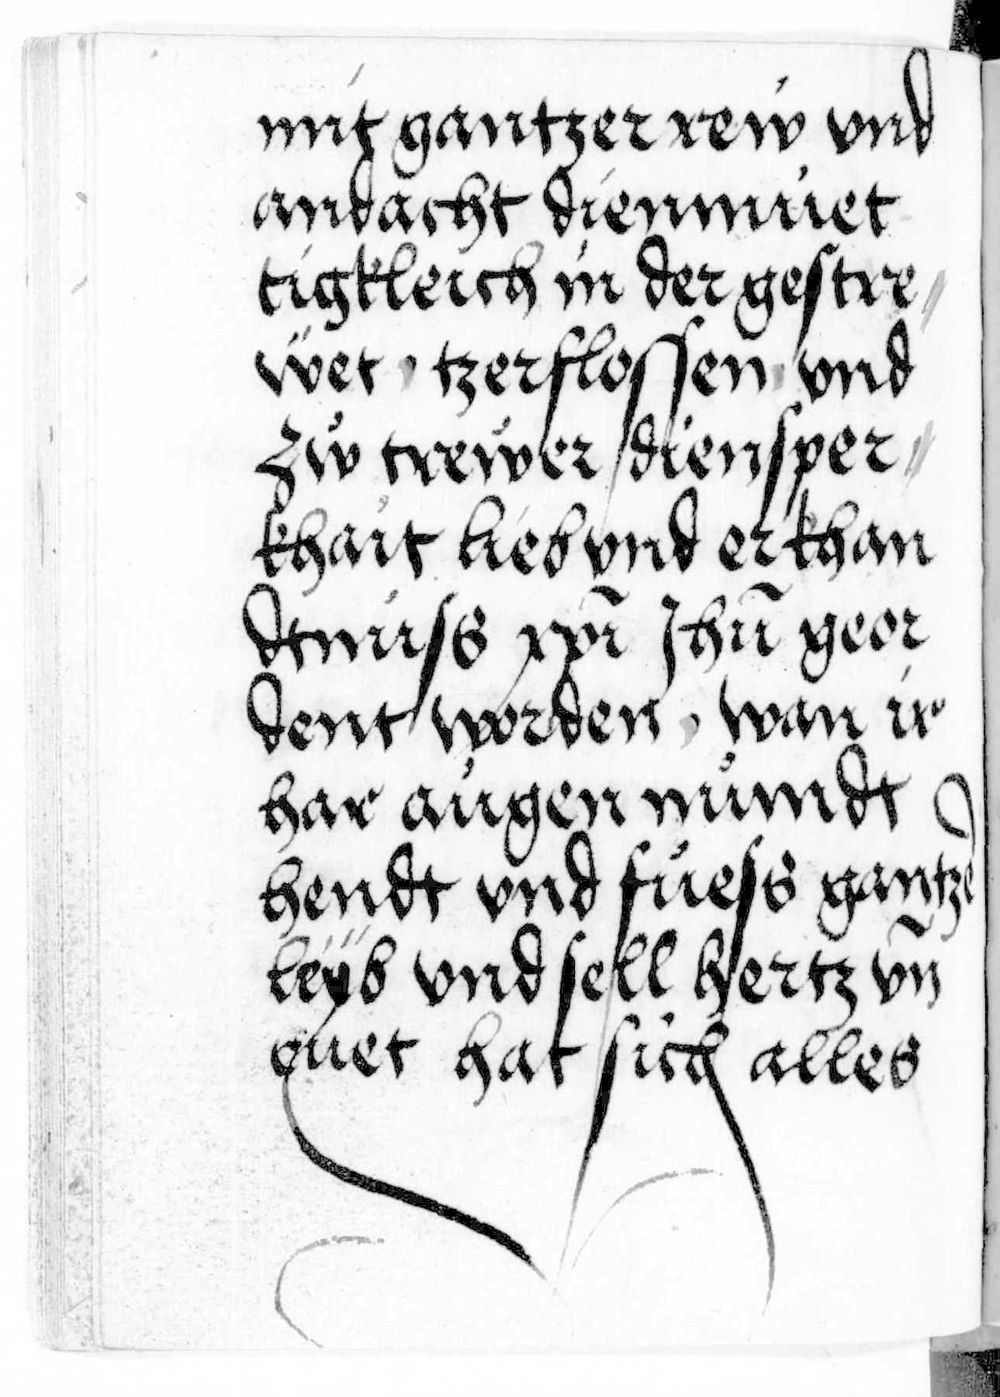 mit gantzer rew vnd
andacht diemmuet
tigkleich in der gestre//
wet, tzerflossen, vnd
zw trewer diensper//
khait lieb vnd erkhan
dtnuss xpi Jhū geor
dent worden, wan ir
har augen mundt
hendt vnd fuess gantze
leyb vnd sell hertz vn̄
guet hat sich alles